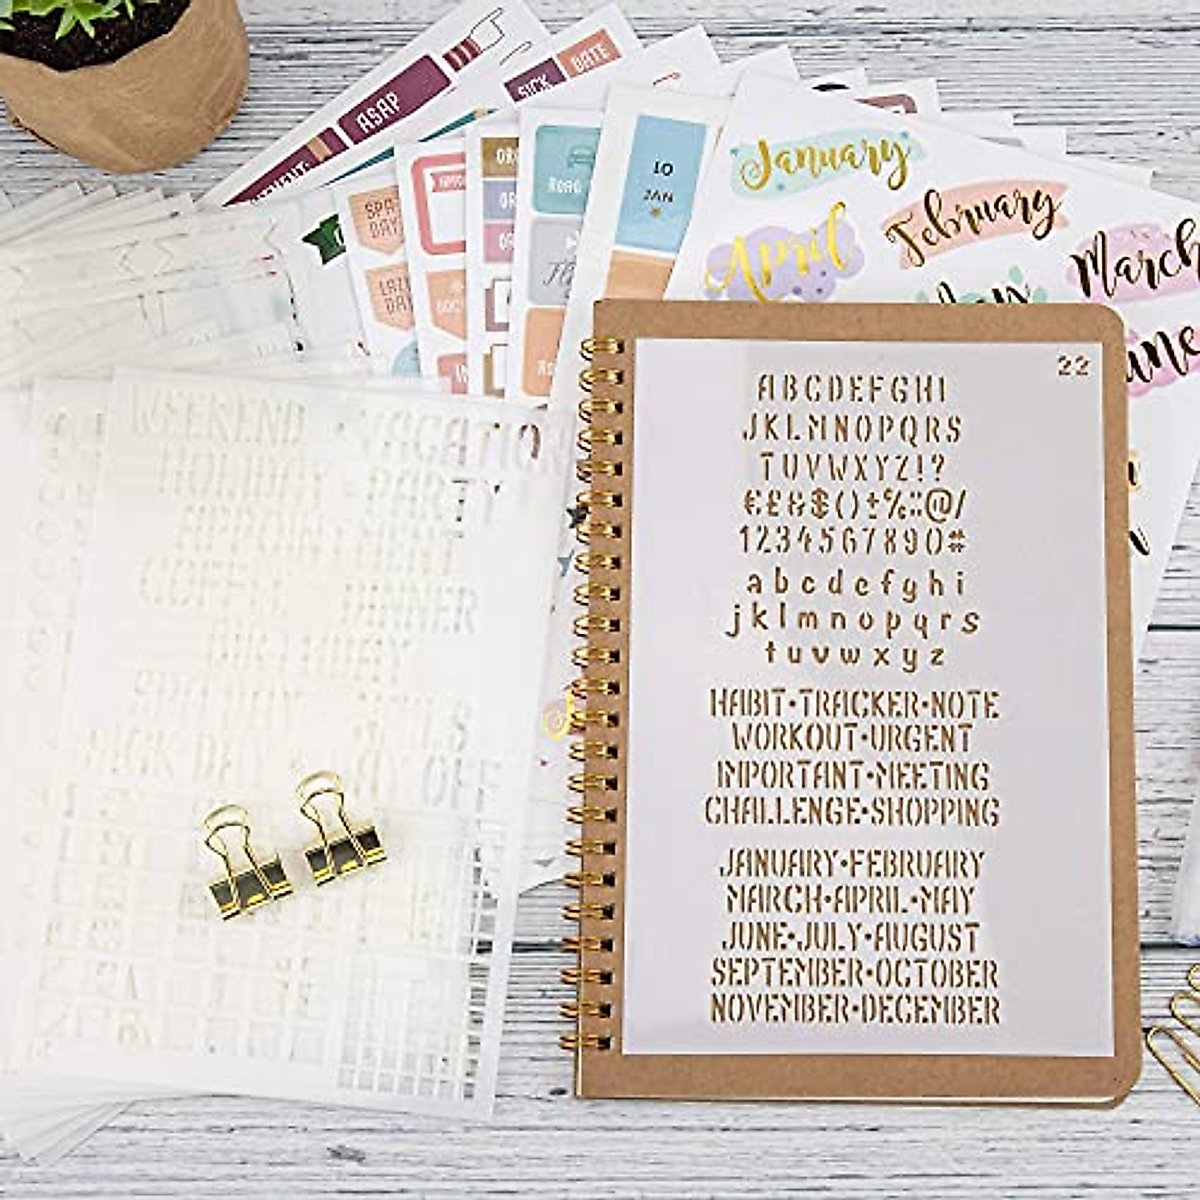 ASAP
SICK
DATE
SPA
DAY
LAZY
DAY
ROAD
10
JAN
January
February
March
April
May
June
22
ABCDEFGHI
JKLMNOPQRS
TUVWXYZ!?
€£&$()±%:;@/
1234567890#
abcdefghi
jklmnopqrs
tuvwxyz
HABIT•TRACKER•NOTE
WORKOUT•URGENT
IMPORTANT•MEETING
CHALLENGE•SHOPPING
JANUARY•FEBRUARY
MARCH•APRIL•MAY
JUNE•JULY•AUGUST
SEPTEMBER•OCTOBER
NOVEMBER•DECEMBER
WEEKEND • VACATIO
HOLIDAY • PARTY
COFFEE DINNER
BIRTHDAY
SICK DAY • DAY OFF